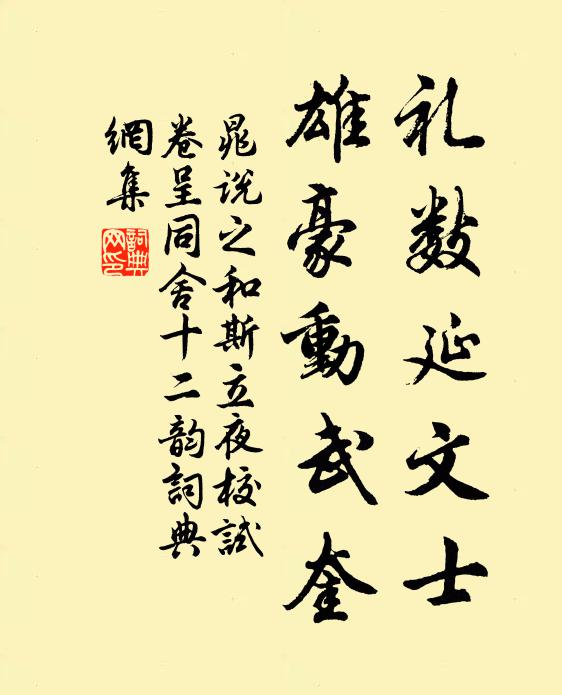 礼数延文士
雄豪動武奎
晁说之和斯立夜校試
卷呈同舍十二韵詞典
網集
詞典
网印